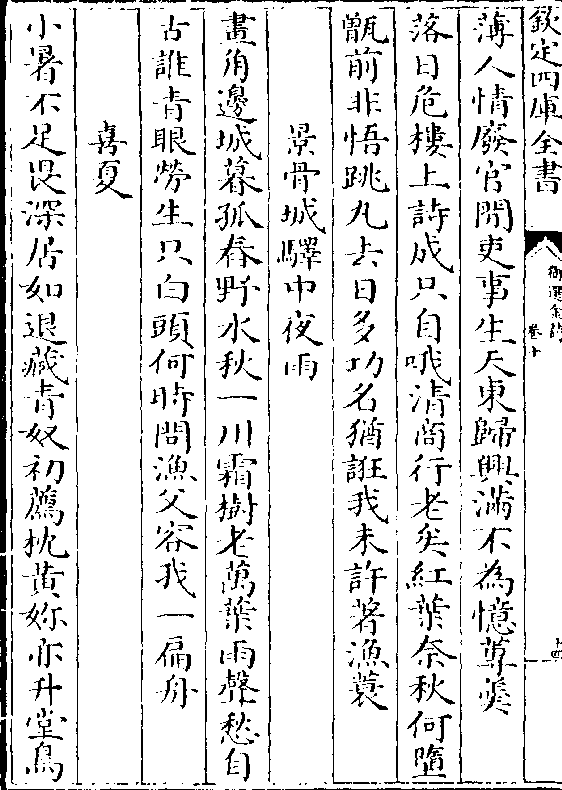 欽定四庫全書
御選金詩
卷十
薄人情廢官閒吏事生天東歸興滿不為憶蓴羮
落日危樓上詩成只自哦清商行老矣紅葉奈秋何墮
甑前非悟跳丸去日多功名猶誑我未許著漁蓑
景骨城驛中夜雨
畫角邊城暮孤舂野水秋一川霜樹老萬葉雨聲愁自
古誰青眼勞生只白頭何時問漁父容我一扁舟
喜夏
小暑不足畏深居如退藏青奴初薦枕黄妳亦升堂鳥